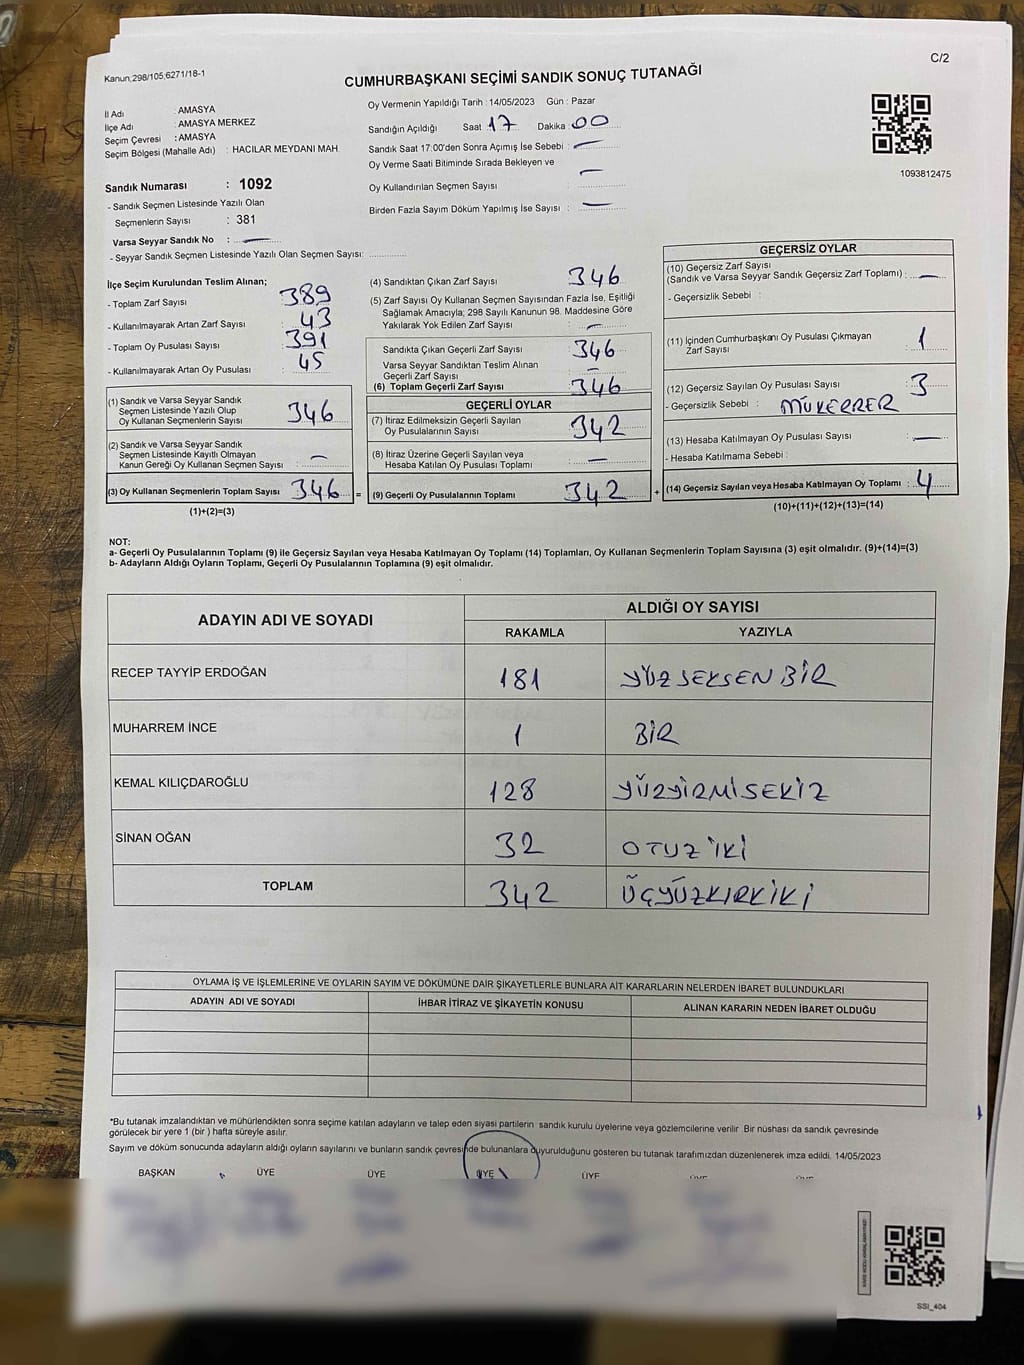 Kanun;298/105;6271/18-1
C/2
CUMHURBAŞKANI SEÇİMİ SANDIK SONUÇ TUTANAĞI
İl Adı : AMASYA
İlçe Adı : AMASYA MERKEZ
Seçim Çevresi : AMASYA
Seçim Bölgesi (Mahalle Adı) : HACILAR MEYDANI MAH.
Oy Vermenin Yapıldığı Tarih : 14/05/2023 Gün : Pazar
Sandığın Açıldığı Saat 17 Dakika 00
Sandık Saat 17:00'den Sonra Açımış İse Sebebi : —
Oy Verme Saati Bitiminde Sırada Bekleyen ve
Oy Kullandırılan Seçmen Sayısı : —
Birden Fazla Sayım Döküm Yapılmış İse Sayısı : —
1093812475
Sandık Numarası : 1092
- Sandık Seçmen Listesinde Yazılı Olan
Seçmenlerin Sayısı : 381
Varsa Seyyar Sandık No : —
- Seyyar Sandık Seçmen Listesinde Yazılı Olan Seçmen Sayısı:
İlçe Seçim Kurulundan Teslim Alınan;
- Toplam Zarf Sayısı : 389
- Kullanılmayarak Artan Zarf Sayısı : 43
- Toplam Oy Pusulası Sayısı : 391
- Kullanılmayarak Artan Oy Pusulası : 45
(1) Sandık ve Varsa Seyyar Sandık
Seçmen Listesinde Yazılı Olup
Oy Kullanan Seçmenlerin Sayısı : 346
(2) Sandık ve Varsa Seyyar Sandık
Seçmen Listesinde Kayıtlı Olmayan
Kanun Gereği Oy Kullanan Seçmen Sayısı : —
(3) Oy Kullanan Seçmenlerin Toplam Sayısı : 346 =
(1)+(2)=(3)
(4) Sandıktan Çıkan Zarf Sayısı : 346
(5) Zarf Sayısı Oy Kullanan Seçmen Sayısından Fazla İse, Eşitliği
Sağlamak Amacıyla; 298 Sayılı Kanunun 98. Maddesine Göre
Yakılarak Yok Edilen Zarf Sayısı : —
Sandıkta Çıkan Geçerli Zarf Sayısı : 346
Varsa Seyyar Sandıktan Teslim Alınan
Geçerli Zarf Sayısı : —
(6) Toplam Geçerli Zarf Sayısı : 346
GEÇERLİ OYLAR
(7) İtiraz Edilmeksizin Geçerli Sayılan
Oy Pusulalarının Sayısı : 342
(8) İtiraz Üzerine Geçerli Sayılan veya
Hesaba Katılan Oy Pusulası Toplamı : —
(9) Geçerli Oy Pusulalarının Toplamı : 342 +
GEÇERSİZ OYLAR
(10) Geçersiz Zarf Sayısı
(Sandık ve Varsa Seyyar Sandık Geçersiz Zarf Toplamı) : —
- Geçersizlik Sebebi :
(11) İçinden Cumhurbaşkanı Oy Pusulası Çıkmayan
Zarf Sayısı : 1
(12) Geçersiz Sayılan Oy Pusulası Sayısı : 3
- Geçersizlik Sebebi : MÜKERRER
(13) Hesaba Katılmayan Oy Pusulası Sayısı : —
- Hesaba Katılmama Sebebi :
(14) Geçersiz Sayılan veya Hesaba Katılmayan Oy Toplamı : 4
(10)+(11)+(12)+(13)=(14)
NOT:
a- Geçerli Oy Pusulalarının Toplamı (9) ile Geçersiz Sayılan veya Hesaba Katılmayan Oy Toplamı (14) Toplamları, Oy Kullanan Seçmenlerin Toplam Sayısına (3) eşit olmalıdır. (9)+(14)=(3)
b- Adayların Aldığı Oyların Toplamı, Geçerli Oy Pusulalarının Toplamına (9) eşit olmalıdır.
ADAYIN ADI VE SOYADI ALDIĞI OY SAYISI
RAKAMLA YAZIYLA
RECEP TAYYİP ERDOĞAN 181 YÜZ SEKSEN BİR
MUHARREM İNCE 1 BİR
KEMAL KILIÇDAROĞLU 128 YÜZYİRMİSEKİZ
SİNAN OĞAN 32 OTUZ İKİ
TOPLAM 342 ÜÇYÜZKIRKİKİ
OYLAMA İŞ VE İŞLEMLERİNE VE OYLARIN SAYIM VE DÖKÜMÜNE DAİR ŞİKAYETLERLE BUNLARA AİT KARARLARIN NELERDEN İBARET BULUNDUKLARI
ADAYIN ADI VE SOYADI İHBAR İTİRAZ VE ŞİKAYETİN KONUSU ALINAN KARARIN NEDEN İBARET OLDUĞU
*Bu tutanak imzalandıktan ve mühürlendikten sonra seçime katılan adayların ve talep eden siyasi partilerin sandık kurulu üyelerine veya gözlemcilerine verilir Bir nüshası da sandık çevresinde
görülecek bir yere 1 (bir ) hafta süreyle asılır.
Sayım ve döküm sonucunda adayların aldığı oyların sayılarını ve bunların sandık çevresinde bulunanlara duyurulduğunu gösteren bu tutanak tarafımızdan düzenlenerek imza edildi. 14/05/2023
BAŞKAN ÜYE ÜYE ÜYE ÜYE
SSI_404